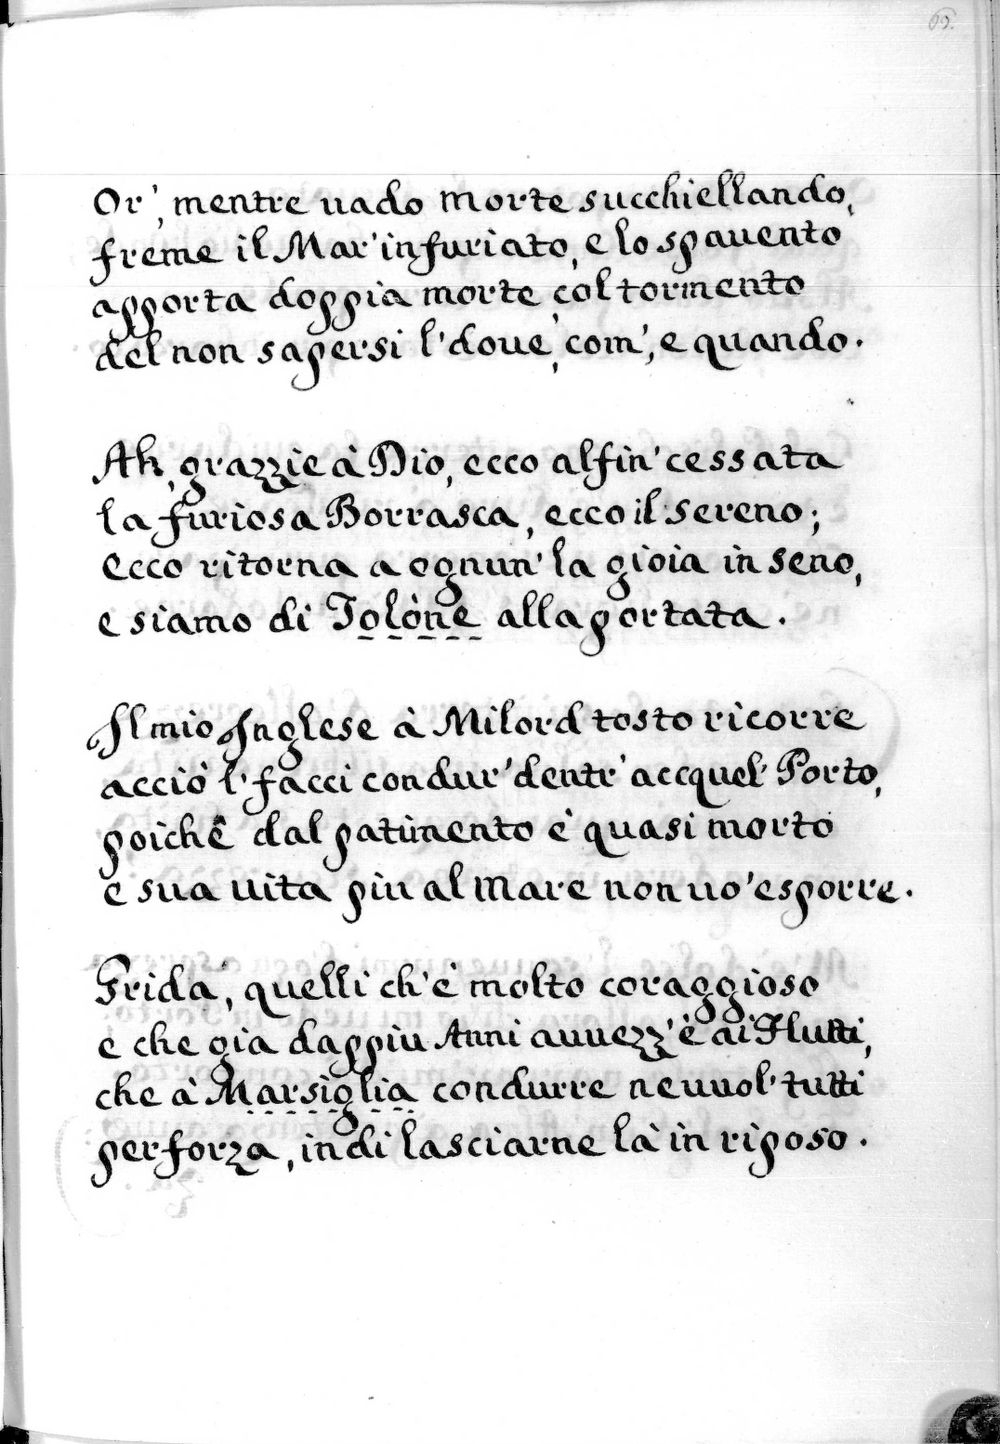 Or', mentre uado morte succhiellando,
freme il Mar' infuriato, e lo spauento
apporta doppia morte col tormento
del non sapersi l'doue, com', e quando.
Ah, grazzie à Dio, ecco alfin' cessata
la furiosa Borrasca, ecco il sereno;
ecco ritorna a ognun' la gioia in seno,
e siamo di Tolòne alla portata.
Il mio Inglese à Milord tosto ricorre
acciò l'facci condur' dentr' accquel' Porto,
poichè dal patimento è quasi morto
e sua uita piu al mare non uo' esporre.
Grida, quelli ch'è molto coraggioso
e che già dappiu Anni auuezz' è ai Flutti,
che à Marsiglia condurre ne uuol' tutti
per forza, indi lasciarne là in riposo.